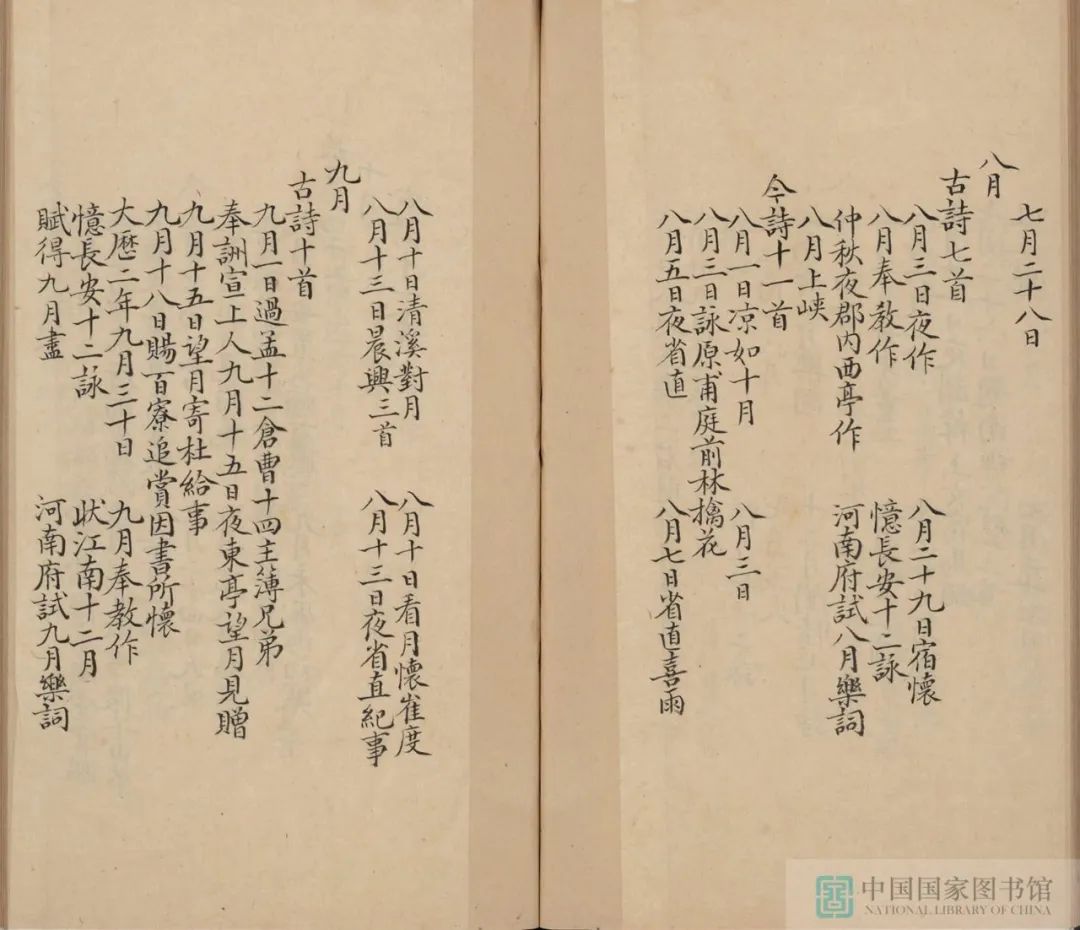 七月二十八日
八月
古詩七首
八月三日夜作
八月二十九日宿懷
八月奉教作
憶長安十二詠
仲秋夜郡內西亭作
河南府試八月樂詞
八月上峽
今詩十一首
八月一日凉如十月
八月三日
八月三日詠原甫庭前林擒花
八月五日夜省直
八月七日省直喜雨
八月十日清溪對月
八月十日看月懷崔度
八月十三日晨興三首
八月十三日夜省直紀事
九月
古詩十首
九月一日過孟十二倉曹十四主簿兄弟
奉詶宣上人九月十五日夜東亭望月見贈
九月十五日望月寄杜給事
九月十八日賜百寮追賞因書所懷
大歷二年九月三十日
九月奉教作
憶長安十二詠
狀江南十二月
賦得九月盡
河南府試九月樂詞
中国国家图书馆
NATIONAL LIBRARY OF CHINA